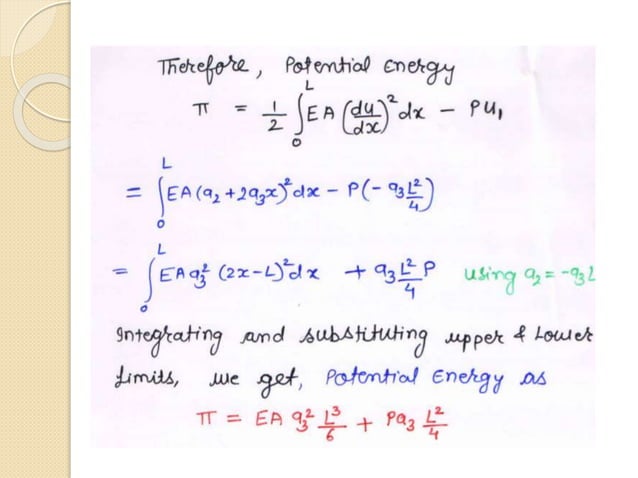 Therefore, Potential Energy
π = 1/2 ∫₀ᴸ EA (du/dx)² dx − Pu₁
= ∫₀ᴸ EA (a₂ + 2a₃x)² dx − P(− a₃ L²/4)
= ∫₀ᴸ EA a₃² (2x−L)² dx + a₃ L²/4 P using a₂ = −a₃L
Integrating and substituting upper & Lower
Limits, we get, Potential Energy as
π = EA a₃² L³/6 + Pa₃ L²/4